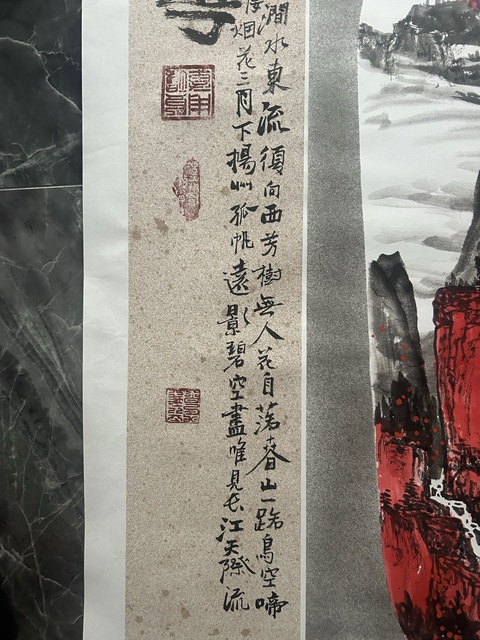 澗水東流復向西芳樹無人花自落春山一路鳥空啼
烟花三月下揚州孤帆遠影碧空盡唯見長江天際流